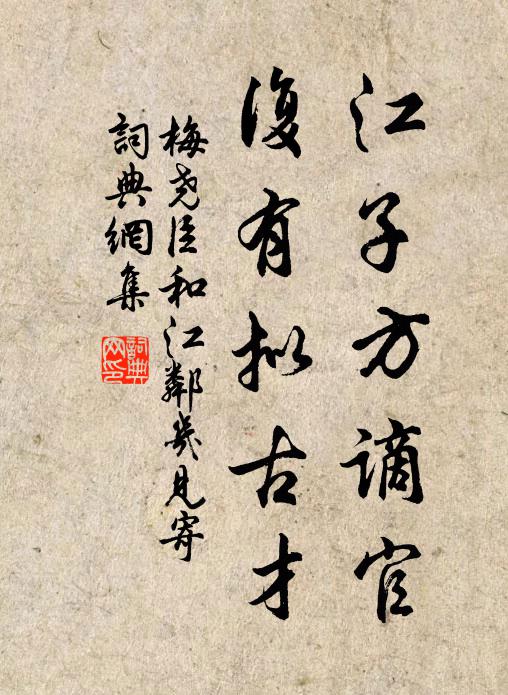 江子方谪官
復有拟古才
梅尧臣和江鄰幾見寄
詞典網集
詞典网印